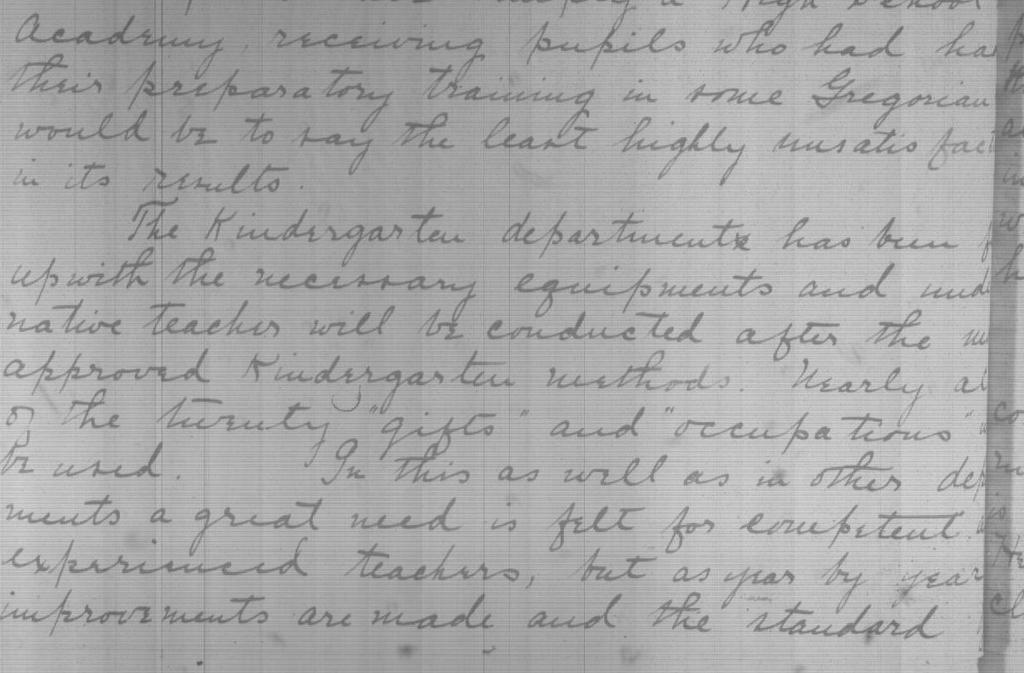 a High School
Academy, receiving pupils who had ha
their preparatory training in some Gregorian
would be to say the least highly unsatisfac
in its results.
The Kindergarten department has been
up with the necessary equipments and und
native teacher will be conducted after the
approved Kindergarten methods. Nearly al
of the twenty "gifts" and "occupations"
be used. In this as well as in other dep
ments a great need is felt for competent
experienced teachers, but as year by year
improvements are made and the standard